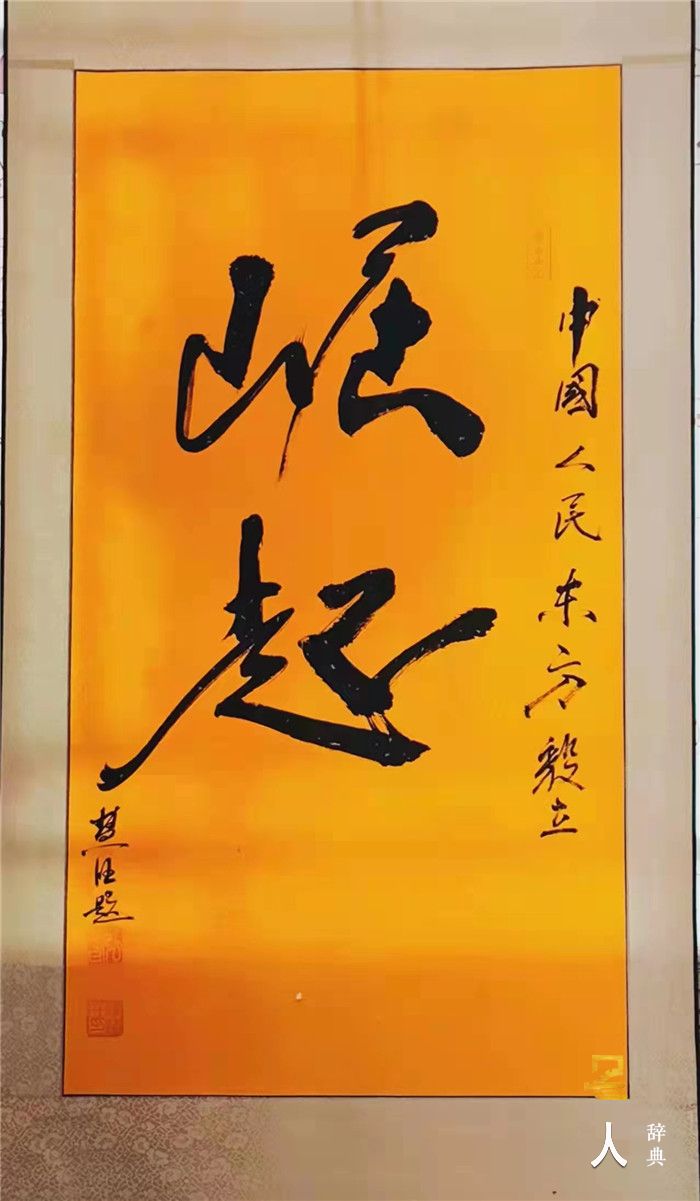 崛起
中國人民东方毅立
题
人 辞典